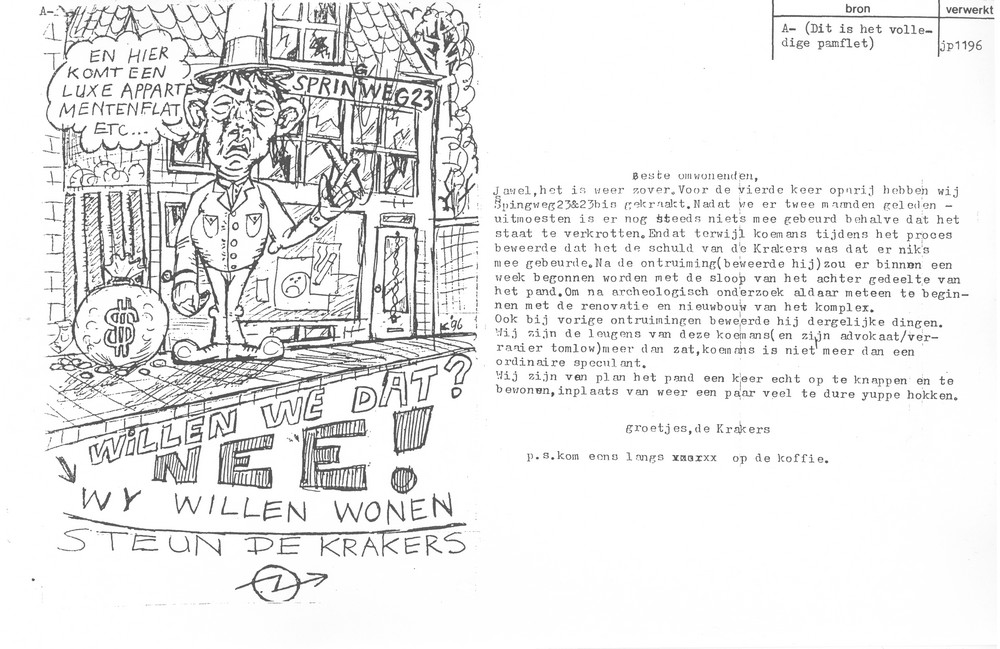 A-
EN HIER
KOMT EEN
LUXE APPARTE
MENTENFLAT
ETC...
SPRINGWEG23
$
K'96
WILLEN WE DAT?
NEE!
WY WILLEN WONEN
STEUN DE KRAKERS
bron verwerkt
A- (Dit is het volle-
dige pamflet)
jp1196
Beste omwonenden,
Jawel,het is weer zover.Voor de vierde keer oprij hebben wij
Spingweg23&23bis gekraakt.Nadat we er twee maanden geleden -
uitmoesten is er nog steeds niets mee gebeurd behalve dat het
staat te verkrotten.Endat terwijl koemans tijdens het proces
beweerde dat het de schuld van de Krakers was dat er niks
mee gebeurde.Na de ontruiming(beweerde hij)zou er binnen een
week begonnen worden met de sloop van het achter gedeelte van
het pand.Om na archeologisch onderzoek aldaar meteen te begin-
nen met de renovatie en nieuwbouw van het komplex.
Ook bij vorige ontruimingen beweerde hij dergelijke dingen.
Wij zijn de leugens van deze koemans(en zijn advokaat/ver-
raaier tomlow)meer dan zat,koemans is niet meer dan een
ordinaire speculant.
Wij zijn van plan het pand een keer echt op te knappen en te
bewonen,inplaats van weer een paar veel te dure yuppe hokken.
groetjes,de Krakers
p.s.kom eens langs op de koffie.